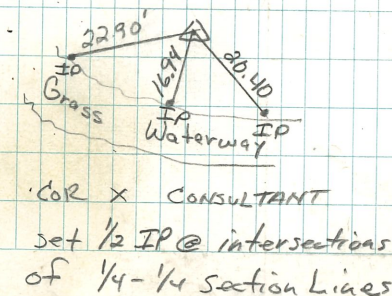 22.90'
IP
16.94
20.40
Grass
IP
IP
Waterway
COR X CONSULTANT
set 1/2 IP @ intersections
of 1/4-1/4 Section Lines